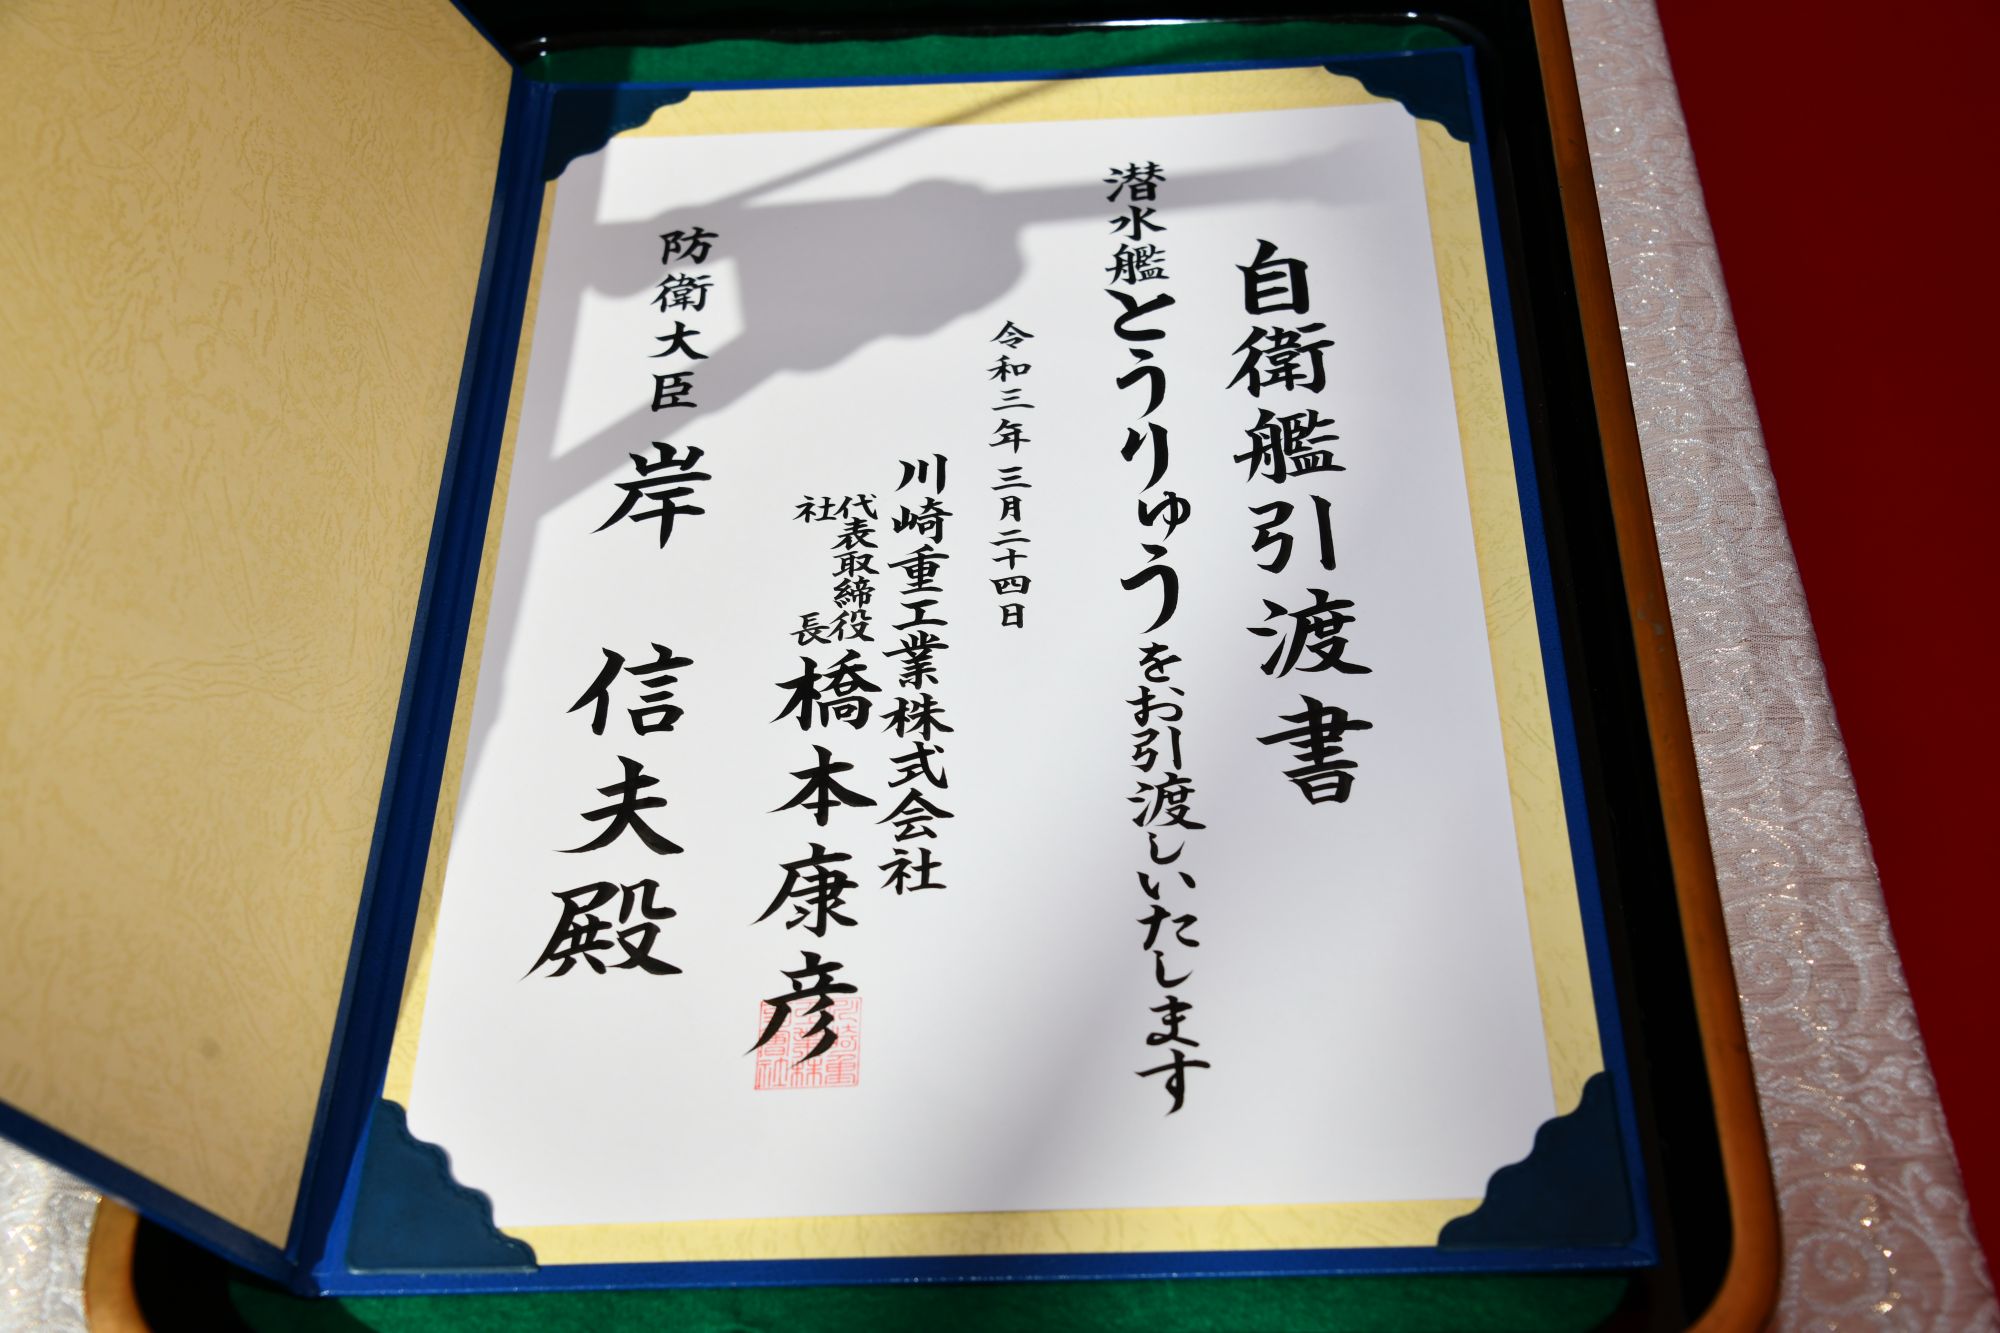 自衛艦引渡書
潜水艦とうりゅうをお引渡しいたします
令和三年三月二十四日
川崎重工業株式会社
代表取締役
社長
橋本康彦
防衛大臣 岸 信夫殿